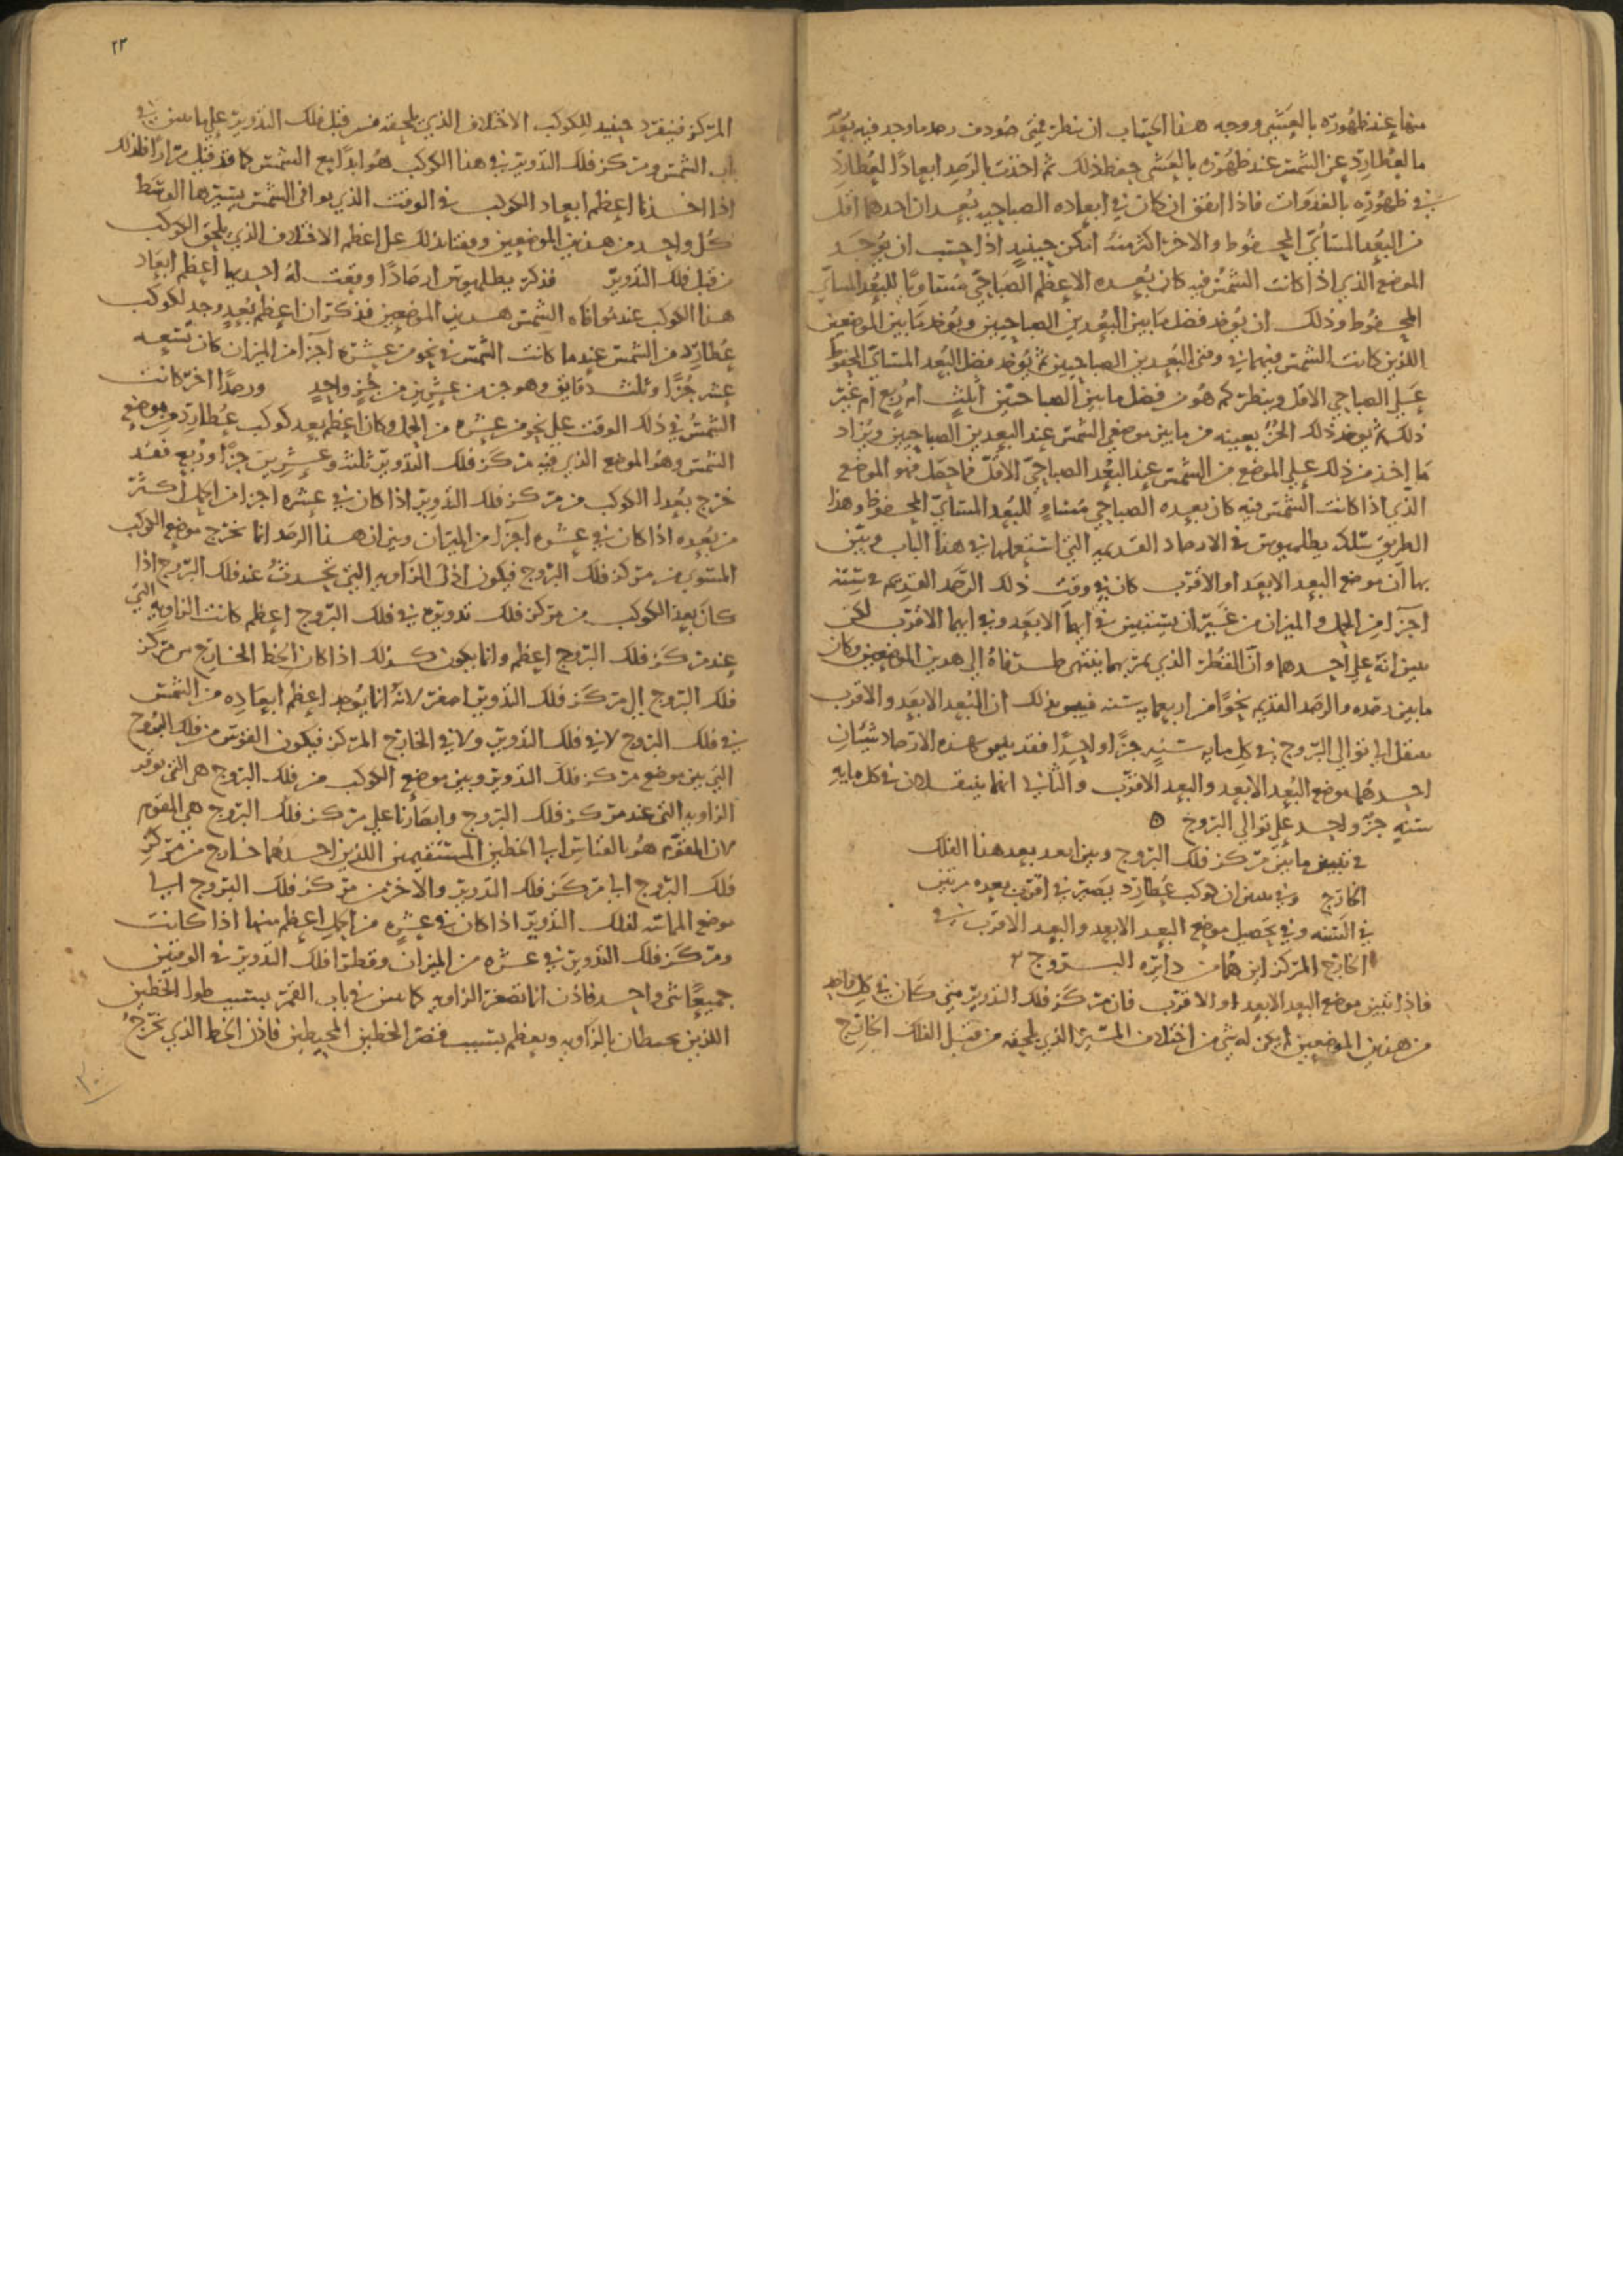 منها عند ظهوره بالعشي ووجه هذا الحساب ان ينظر فمتى صودف رصد ما وجد فيه بُعدٌ
ما لعطارد عن الشمس عند ظهوره بالعشي حفظ ذلك ثم اخذت بالرصد ابعادًا لعطارد
في ظهوره بالغدوات فاذا اتفق ان كان في ابعاده الصباحيه بُعدان احدهما اقل
من البُعد المسائي المحفوظ والاخر اكثر منه امكن حينيذٍ اذا حسب ان يوجد
الموضع الذي اذا كانت الشمس فيه كان بُعده الاعظم الصباحي مساويًا للبُعد المسائي
المحفوظ وذلك ان يُوخذ فضل ما بين البُعدين الصباحيين ويُوخذ ما بين الموضعين
اللذين كانت الشمس فيهما في وقتي البُعدين الصباحيين ثم يُوخذ فضل البُعد المسائي المحفوظ
على الصباحي الاقل وينظر كم هو من فضل ما بين الصباحيين أثلث ام ربع ام غير
ذلك ثم يوخذ ذلك الجزُ بعينه من ما بين موضعي الشمس عند البعدين الصباحيين ويُزاد
ما اخذ من ذلك على الموضع من الشمس عند البُعد الصباحيّ الاقلّ فما حصل فهو الموضع
الذي اذا كانت الشمس فيه كان بعده الصباحي مساوٍ للبُعد المسائيّ المحفوظ وهذا
الطريق سلك بطلميوس في الارصاد القديمه التي استعملها في هذا الباب وبيّن
بها ان موضع البعد الابعد او الاقرب كان في وقت ذلك الرصد القديم في سته
اجزآ من الحمل والميزان من غير ان يستبين في ايهما الابعد وفي ايهما الاقرب لكن
يبين انه على احدهما وانّ القُطر الذي يمر بهما ينتهي طرفاهُ الى هذين الموضعين وكان
ما بين رصده والرصد القديم نحوًا من اربعمايه سنه فبين بذلك ان البُعد الابعد والاقرب
ينتقل الى توالي البروج في كل مايه سنةٍ جزًا واحدًا فقد بين بهذه الارصاد شيئان
احدهما موضع البُعد الابعد والبعد الاقرب والثاني انهما ينتقلان في كل مايه
سنهٍ جزٌ واحد على توالي البروج ه
في تبيين ما بين مركز فلك البروج وبين ابعد بعد هذا الفلك
الخارج وفي تبيين ان كوكب عطارد يصير في اقرب بعده مرتين
في السنه وفي تحصيل موضع البعد الابعد والبعد الاقرب في
الخارج المركز اين هما من دايره البروج
فاذا تبين موضع البعد الابعد او الاقرب فان مركز فلك التدوير متى كان في كل واحد
من هذين الموضعين لم يكن له شي من اختلاف المسير الذي يلحقه من قبل الفلك الخارج
٢٣
المركز فينفرد حينيذ للكوكب الاختلاف الذي يلحقه من قبل فلك التدوير على ما بين في
باب الشمس ومركز فلك التدوير في هذا الكوكب هو ابدًا مع الشمس كما قد قيل مرارًا فلذلك
اذا اخذنا اعظم ابعاد الكوكب في الوقت الذي يوافي الشمس بسيرها الوسط
كُل واحد من هذين الموضعين وقفنا بذلك على اعظم الاختلاف الذي يلحق الكوكب
من قبل فلك التدوير فذكر بطلميوس ارصادًا وقعت له احديها اعظم ابعاد
هذا الكوكب عند موافاه الشمس هذين الموضعين فذكر ان اعظم بُعدٍ وجد لكوكب
عُطارد من الشمس عندما كانت الشمس في نحو من عشره اجزآ من الميزان كان تسعه
عشر جزًا وثلث دقايق وهو جزء من عشرين من جزءٍ واحدٍ ورصدًا اخر كانت
الشمسُ في ذلك الوقت على نحو من عشره من الحمل وكان اعظم بعد كوكب عُطارد من موضع
الشمس وهو الموضع الذي فيه مركز فلك التدوير ثلثه وعشرين جزًا وربع فقد
خرج بُعد الكوكب من مركز فلك التدوير اذا كان في عشره اجزا من الحمل اكثر
من بُعده اذا كان في عشره اجزآ من الميزان وبين ان هذا الرصد انما يخرج موضع الكوكب
المستوي من مركز فلك البروج فيكون اذن الزاويه التي تحدث عند فلك البروج اذا
كان بعد الكوكب من مركز فلك تدويره في فلك البروج اعظم كانت الزاويه التي
عند مركز فلك البروج اعظم وانما يكون كذلك اذا كان الخط الخارج من مركز
فلك البروج الى مركز فلك التدوير اصغر لانه انما يُوجد اعظم ابعاده من الشمس
في فلك البروج لا في فلك التدوير ولا في الخارج المركز فيكون القوس من فلك البروج
التي بين موضع مركز فلك التدوير وبين موضع الكوكب من فلك البروج هي التي توتر
الزاويه التي عند مركز فلك البروج وابصارنا على مركز فلك البروج هي المقوم
لان المقوم هو بالقياس الى الخطين المستقيمين اللذين احدهما خارج من مركز
فلك البروج الى مركز فلك التدوير والاخر من مركز فلك البروج الى
موضع المماسه لفلك التدوير اذا كان في عشره من الحمل اعظم منها اذا كانت
ومركز فلك التدوير في عشره من الميزان وقطرا فلك التدوير في الوقتين
جميعًا شي واحد فاذن انما تصغر الزاويه كما بين في باب القمر بسبب طول الخطين
اللذين يحيطان بالزاويه ويعظم بسبب قصر الخطين المحيطين فاذن الخط الذي يخرج